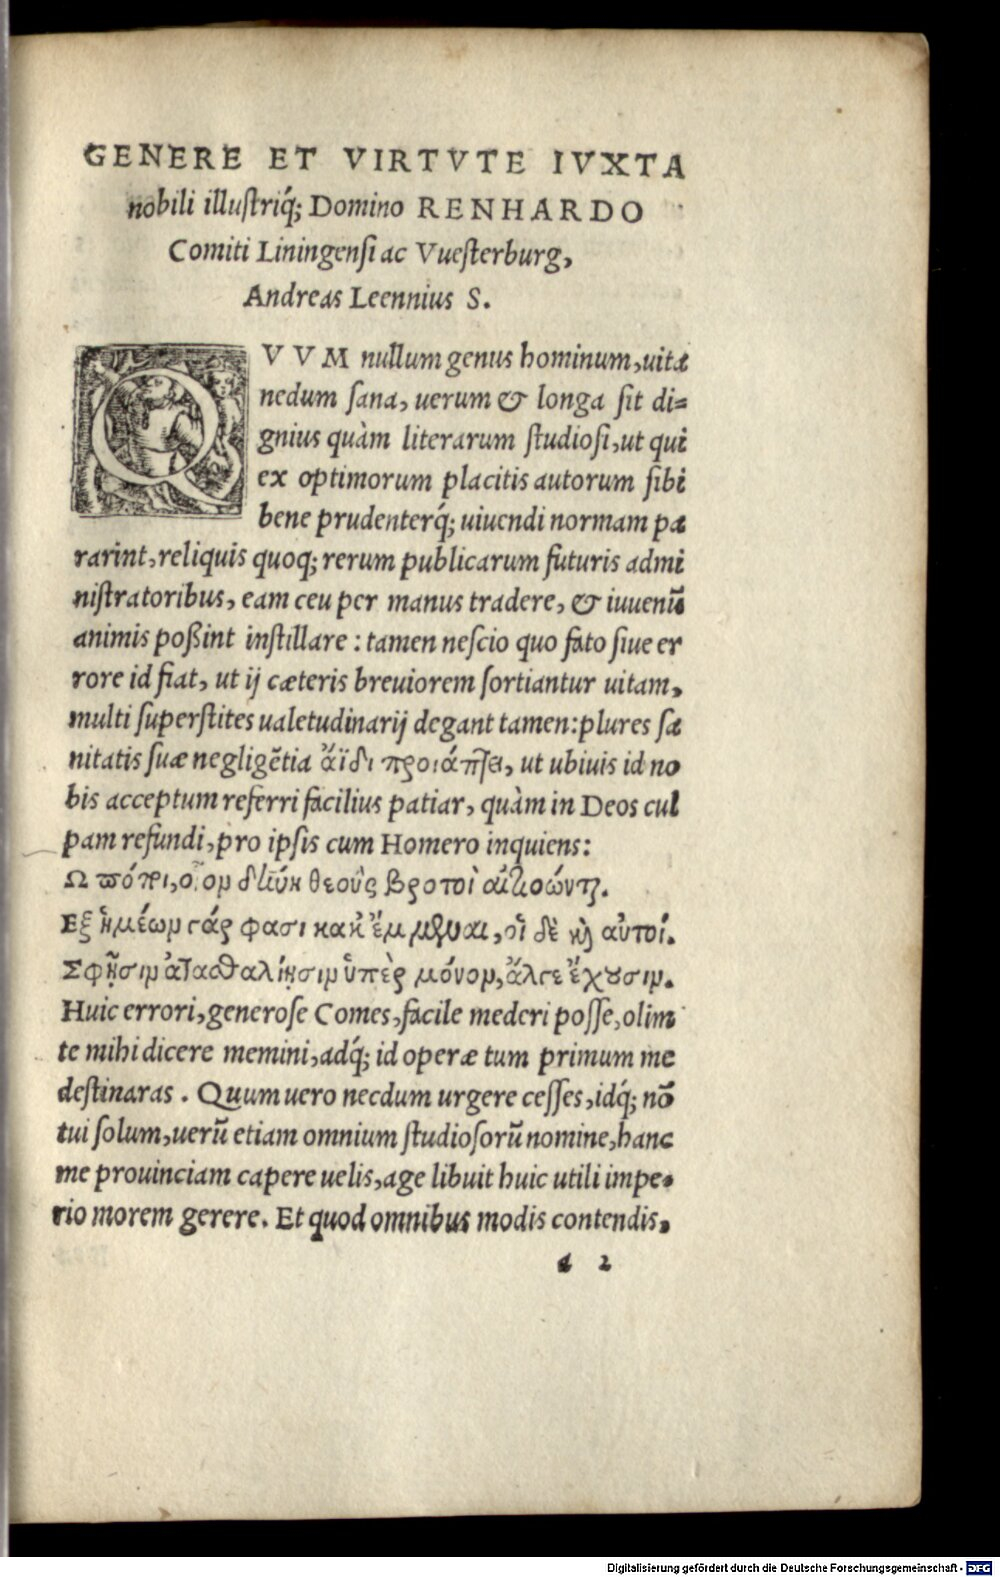 GENERE ET VIRTVTE IVXTA
nobili illustriq́; Domino RENHARDO
Comiti Liningensi ac Vuesterburg,
Andreas Leennius S.
QVVM nullum genus hominum, uitæ
nedum sana, uerum & longa sit di=
gnius quàm literarum studiosi, ut qui
ex optimorum placitis autorum sibi
bene prudenterq́; uiuendi normam pa
rarint, reliquis quoq; rerum publicarum futuris admi
nistratoribus, eam ceu per manus tradere, & iuuenū
animis poßint instillare : tamen nescio quo fato siue er
rore id fiat, ut ij cæteris breuiorem sortiantur uitam,
multi superstites ualetudinarij degant tamen: plures sa
nitatis suæ negligẽtia ἄϊδι προιάπτει, ut ubiuis id no
bis acceptum referri facilius patiar, quàm in Deos cul
pam refundi, pro ipsis cum Homero inquiens:
Ω πόποι, οἷον θεοὺς βροτοὶ
Εξ ἡμέων γάρ φασι κακ' ἔμμεναι, οἱ δὲ καὶ αὐτοί.
Σφῇσιν ἀτασθαλίῃσιν ὑπὲρ μόνον, ἄλγε' ἔχουσιν.
Huic errori, generose Comes, facile mederi posse, olim
te mihi dicere memini, adq́; id operæ tum primum me
destinaras . Quum uero necdum urgere cesses, idq́; nō
tui solum, uerū etiam omnium studiosorū nomine, hanc
me prouinciam capere uelis, age libuit huic utili impe=
rio morem gerere. Et quod omnibus modis contendis,
a 2
Digitalisierung gefördert durch die Deutsche Forschungsgemeinschaft - DFG